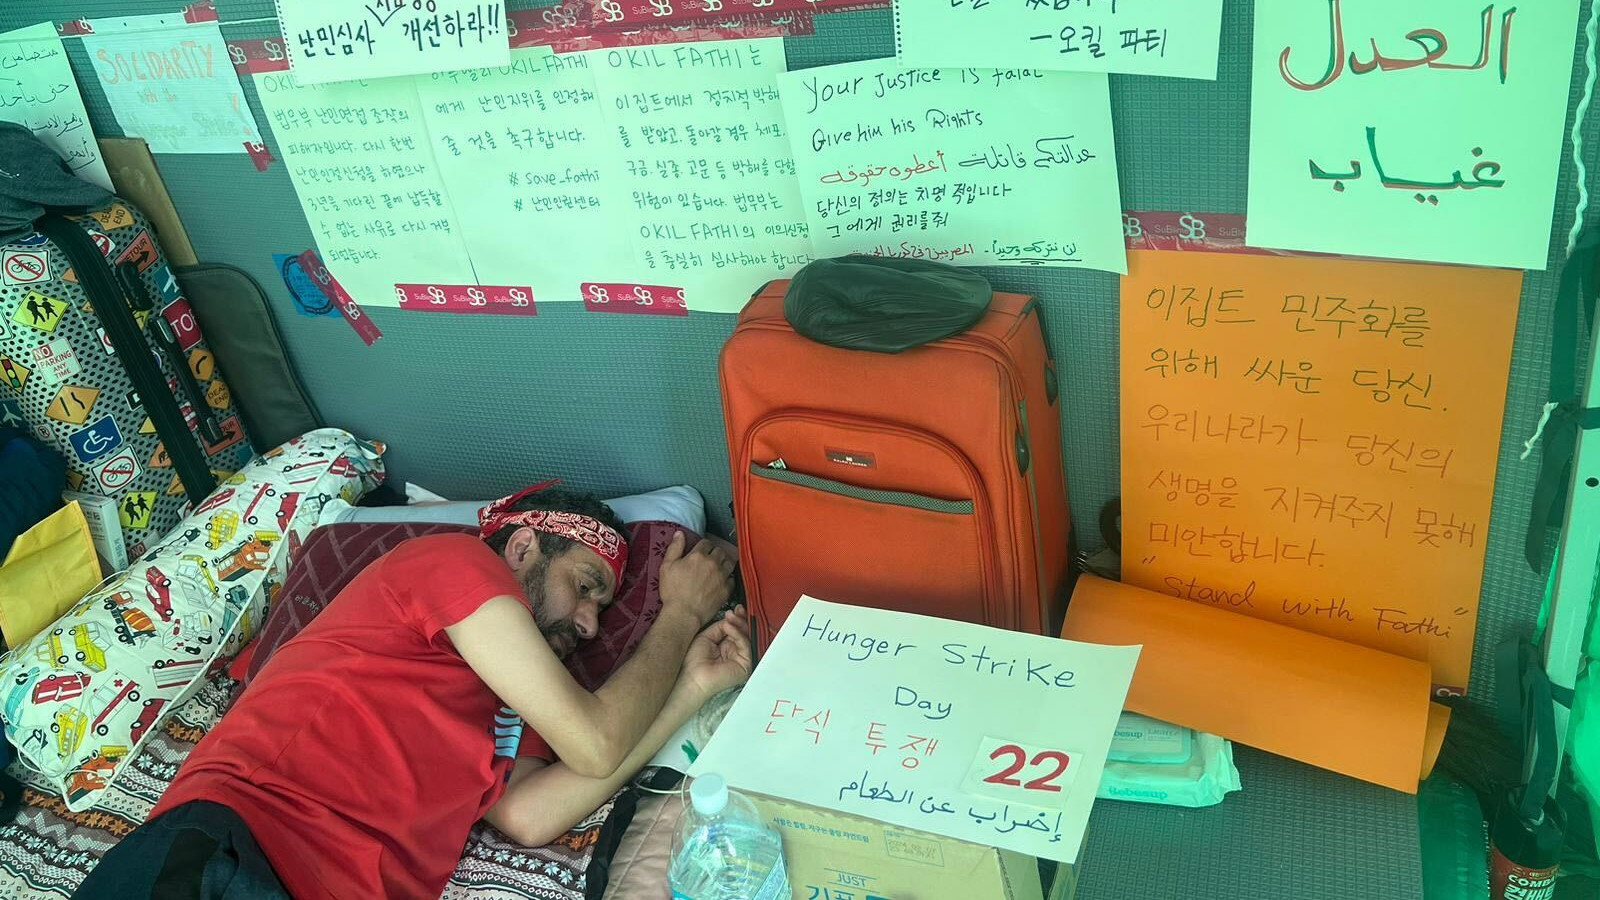 난민심사 개선하라!!
-오킬 파티
SOLIDARITY
with the
Hunger Strike
법무부 난민면접 조작의
피해자입니다. 다시 한번
난민인정신청을 하였으나
3년을 기다린 끝에 납득할
수 없는 사유로 다시 거부
되었습니다.
OKIL FATHI
에게 난민지위를 인정해
줄 것을 촉구합니다.
# save_fathi
# 난민인권센터
OKIL FATHI는
이집트에서 정치적 박해
를 받았고, 돌아갈 경우 체포,
구금, 실종, 고문 등 박해를 당할
위험이 있습니다. 법무부는
OKIL FATHI의 이의신청
을 충실히 심사해야 합니다
Your Justice is fatal
Give him his Rights
عدالتكم قاتلة أعطوه حقوقه
당신의 정의는 치명적입니다
그에게 권리를줘
لن نتركه وحيداً
العدل
غياب
이집트 민주화를
위해 싸운 당신.
우리나라가 당신의
생명을 지켜주지 못해
미안합니다.
"Stand with Fathi"
Hunger Strike
Day
단식 투쟁 22
إضراب عن الطعام
NO
PARKING
ANY
TIME
DEAD
END
JUST